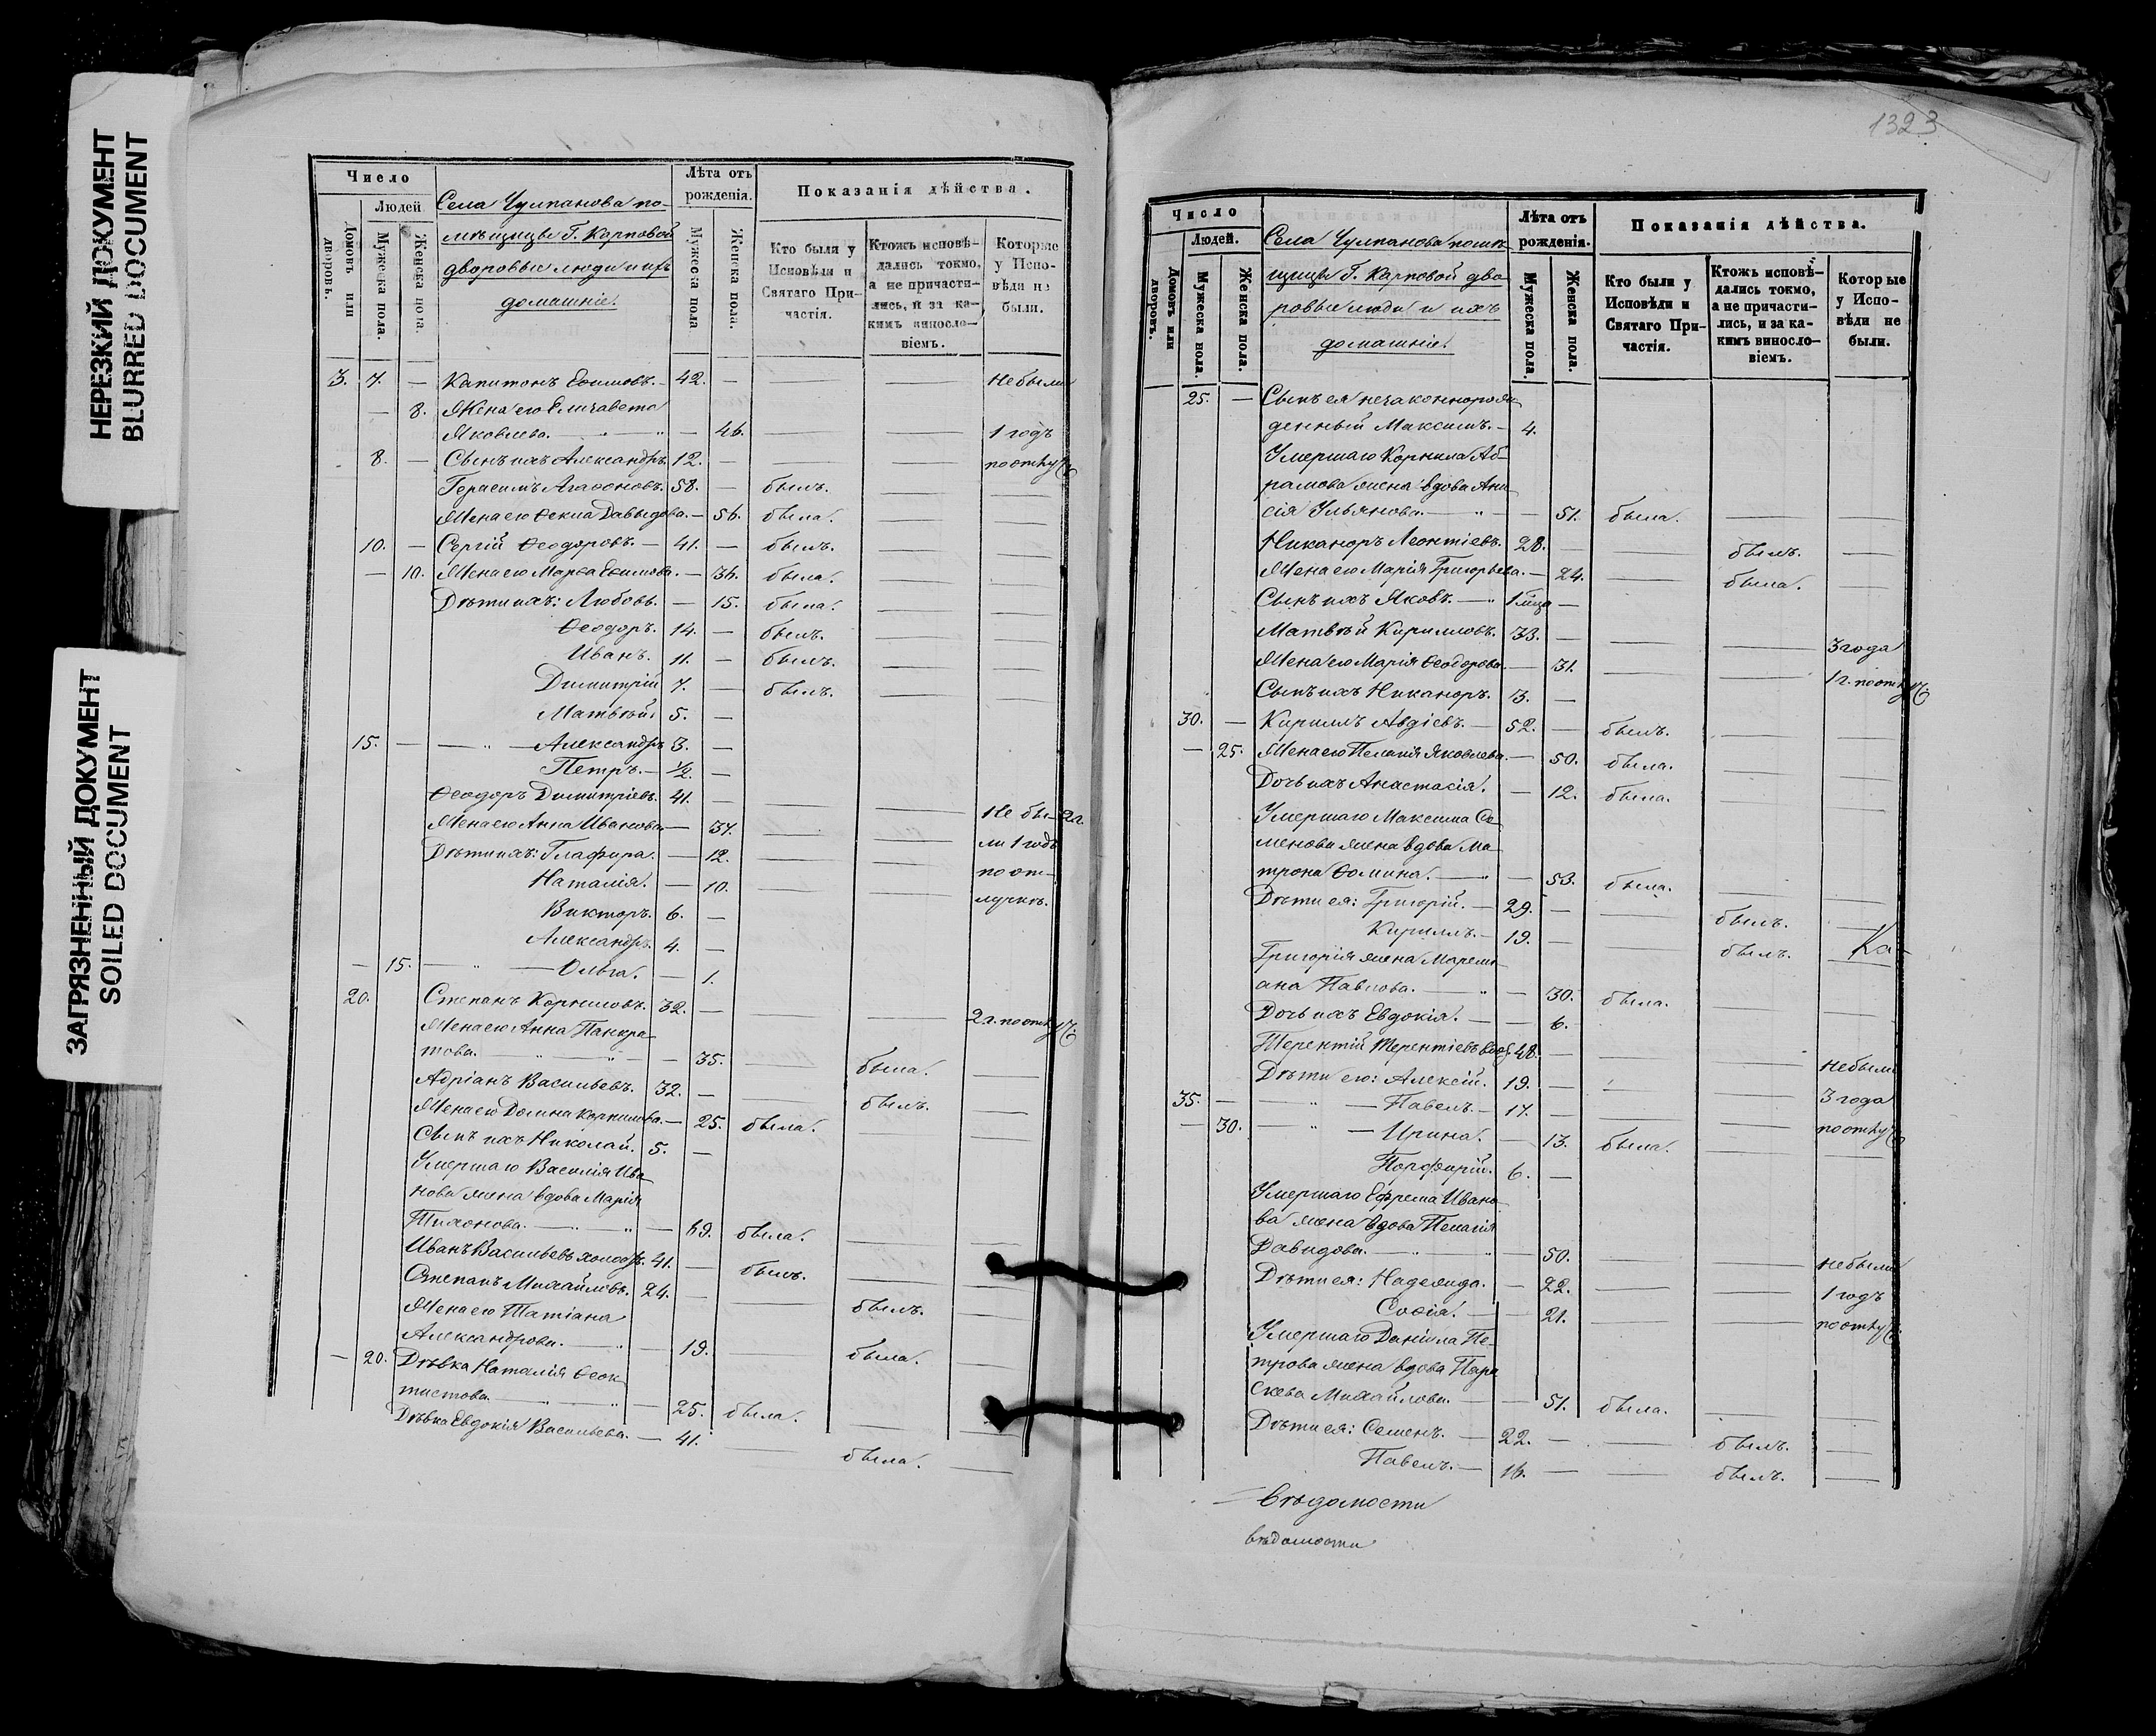 НЕРЕЗКИЙ ДОКУМЕНТ
BLURRED DOCUMENT
ЗАГРЯЗНЕННЫЙ ДОКУМЕНТ
SOILED DOCUMENT
Число
Людей
Домовъ или дворовъ.
Мужеска пола.
Женска пола.
Села Чулпанова по-
мѣщицы Г. Карповой
дворовые люди и ихъ
домашніе.
Лѣта отъ рожденія.
Мужеска пола
Женска пола.
Показанія дѣйства.
Кто были у Исповѣди и Святаго При-частія.
Ктожъ исповѣ-дались токмо, а не причасти-лись, и за ка-кимъ винослo-віемъ.
Которые у Испо-вѣди не были.
3. 7. — Капитонъ Ефимовъ. — 42. — — — Небыли
— 8. Жена его Елисавета
Яковлева. — — 46. — — 1 годъ
8. — Сынъ ихъ Александръ. 12. — — — по отлуч
Герасимъ Агафоновъ. 58. — былъ. — —
Жена его Ѳекла Давыдова. — 56. была. — —
10. — Сергій Ѳеодоровъ. — 41. — былъ. — —
— 10. Жена его Марѳа Ефимова. — 36. была. — —
Дѣти ихъ: Любовь. — 15. была. — —
Ѳеодоръ. 14. — былъ. — —
Иванъ. 11. — былъ. — —
Димитрій 7. — былъ. — —
Матвѣй. 5. —
15. — — „ — Александръ 3. —
Петръ. — 1/2. —
Ѳеодоръ Димитріевъ. 41. — — — Не бы- 2 л.
Жена его Анна Иванова — 37. — — ли 1 годъ
Дѣти ихъ: Глафира. — 12. — — по от-
Наталія. — 10. — — лучкѣ.
Викторъ. 6. —
Александръ. 4. —
— 15. — „ — Ольга. — 1.
20. Степанъ Корниловъ. 32. — — — 2 г. по отлуч
Жена его Анна Панкра-
това. — „ — „ — — 35. — была. —
Адріанъ Васильевъ. 32. — — былъ. —
Жена его Домна Корнилова. — 25. была. — —
Сынъ ихъ Николай. 5. —
Умершаго Василія Ива-
нова жена вдова Марія
Тихонова. — „ — „ — 69. была. — —
Иванъ Васильевъ холост. 41. — былъ. — —
Степанъ Михайловъ. 24. — — былъ. —
Жена его Татіана
Александрова. — „ — 19. — была. —
— 20. Дѣвка Наталія Ѳеок-
тистова. — „ — „ — 25. была. — —
Дѣвка Евдокія Васильева. — 41. — была. —
1323
Число
Людей.
Домовъ или дворовъ.
Мужеска пола.
Женска пола.
Села Чулпанова помѣ
щицы Г. Карповой дво
ровые люди и ихъ
домашніе.
Лѣта отъ рожденія.
Мужеска пола.
Женска пола.
Показанія дѣйства.
Кто были у Исповѣди и Святаго При-частія.
Ктожъ исповѣ-дались токмо, а не причасти-лись, и за ка-кимъ винослo-віемъ.
Которые у Испо-вѣди не были.
25. — Сынъ ея незаконнорож-
денный Максимъ. — 4.
Умершаго Корнила Аб-
рамова жена вдова Ани-
сія Ульянова. — „ — — 51. была. — —
Никаноръ Леонтіевъ. 28. — — былъ. —
Жена его Марія Григорьева. — 24. — была. —
Сынъ ихъ Яковъ. — „ 1 мѣся —
Матвѣй Кирилловъ. 33. — — — 3 года
Жена его Марія Ѳеодорова. — 31. — — 1 г. по отлуч
Сынъ ихъ Никаноръ. 3. —
30. — Кириллъ Авдіевъ. — 52. — былъ. — —
— 25. Жена его Пелагія Яковлева. — 50. была. — —
Дочь ихъ Анастасія. — 12. была. — —
Умершаго Максима Се-
менова жена вдова Ма-
трона Ѳомина. — „ — 53. была. — —
Дѣти ея: Григорій. — 29. — — былъ. —
Кириллъ. — 19. — — былъ. — Ка-
Григорія жена Марем-
ана Павлова. — „ — 30. была. — —
Дочь ихъ Евдокія. — — 6.
Терентій Терентіевъ вдов. 48. — — — небыли
Дѣти его: Алексій. 19. — — — 3 года
35. — — „ — Павелъ. — 17. — — — по отлуч
— 30. — „ — Ирина. — 13. была. — —
Порфирій. 6. —
Умершаго Ефрема Ивано-
ва жена вдова Пелагія
Давидова. — „ — „ — 50. — — небыли
Дѣти ея: Надежда. — 22. — — 1 годъ
Софія. — — 21. — — по отлуч
Умершаго Даніила Пе-
трова жена вдова Пара
скева Михайлова. — — 51. была. — —
Дѣти ея: Семенъ. — 22. — — былъ. —
Павелъ. — 16. — — былъ. —
Вѣдомости
вѣдомости